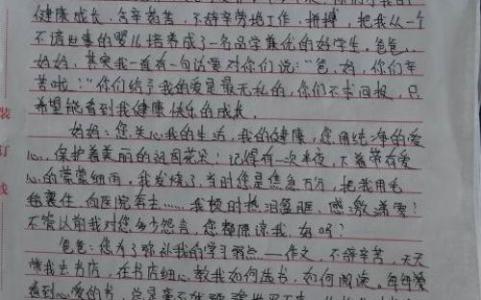 健康成长,含辛茹苦,不辞辛劳地工作,拼搏,把我从一个
不谙世事的婴儿培养成了一名品学兼优的好学生。爸爸、
妈妈,其实我一直有一句话要对你们说:“爸,妈,你们辛
苦啦!”你们给予我的爱是最无私的,你们不求回报,只
希望能看到我健康快乐的成长。
妈妈:您关心我的生活,我的健康,您用纯净的爱
心,保护着美丽的祖国花朵!记得有一次半夜,下着带有爱
心的蒙蒙细雨,我发烧了,当时您是焦急万分,把我用毛
毯裹住向医院奔去……我顿时热泪盈眶,感激涕零!
不管以前我对您多少怨言,您都原谅我,好吗?
爸爸:您为了弥补我的学习弱点——作文,不辞辛苦,天天
带我去书店,在书店细心教我如何选书,如何阅读。每每
看到心爱的书,总是
装
订
线